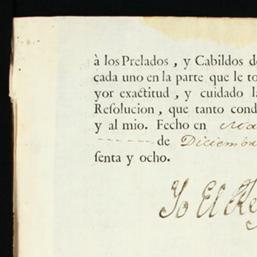 à los Prelados, y Cabildos de
cada uno en la parte que le to
yor exactitud, y cuidado la
Resolucion, que tanto cond
y al mio. Fecho en
de Diciembre
senta y ocho.
Yo El Rey